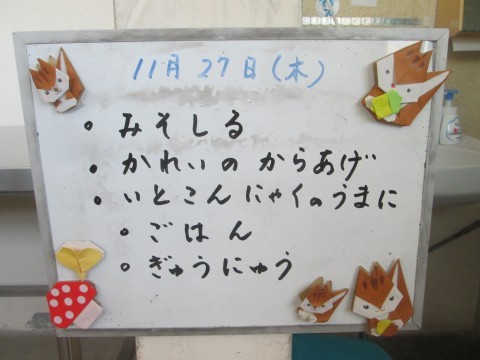 11月27日(木)
• みそしる
• かれいのからあげ
• いとこんにゃくのうまに
• ごはん
• ぎゅうにゅう